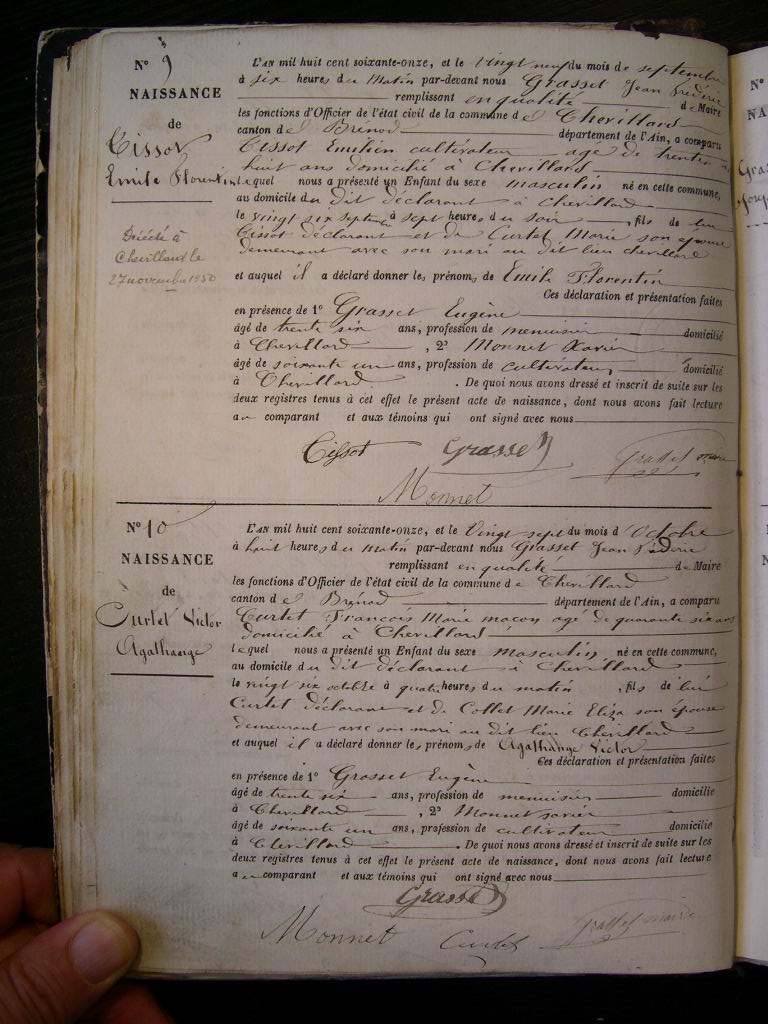 N° 9
NAISSANCE
de
Cissot
Emile Florentin
Décédé à
Chevillard le
27 novembre 1950
L'AN mil huit cent soixante-onze, et le vingt neuf du mois de septembre
à six heures du matin par-devant nous Grasset Jean Frédéric
remplissant en qualité de Maire
les fonctions d'Officier de l'état civil de la commune de Chevillard
canton de Brénod département de l'Ain, a comparu
Cissot Emilien cultivateur agé de trente
huit ans domicilié à Chevillard
lequel nous a présenté un Enfant du sexe masculin né en cette commune,
au domicile du dit déclarant à Chevillard
le vingt six septembre à sept heures du soir, fils de lui
Cissot déclarant et de Curtet Marie son épouse
demeurant avec son mari au dit lieu chevillard
et auquel il a déclaré donner les prénoms de Emile Florentin
Ces déclaration et présentation faites
en présence de 1° Grasset Eugène
âgé de trente six ans, profession de menuisier domicilié
à Chevillard, 2° Monnet Xavier
âgé de soixante un ans, profession de cultivateur domicilié
à Chevillard. De quoi nous avons dressé et inscrit de suite sur les
deux registres tenus à cet effet le présent acte de naissance, dont nous avons fait lecture
au comparant et aux témoins qui ont signé avec nous
Cissot Grasset Grasset maire
Monnet
N° 10
NAISSANCE
de
Curtet Victor
Agathange
L'AN mil huit cent soixante-onze, et le vingt sept du mois d'Octobre
à huit heures du matin par-devant nous Grasset Jean Frédéric
remplissant en qualité de Maire
les fonctions d'Officier de l'état civil de la commune de Chevillard
canton de Brénod département de l'Ain, a comparu
Curtet François Marie maçon agé de quarante six ans
domicilié à Chevillard
lequel nous a présenté un Enfant du sexe masculin né en cette commune,
au domicile du dit déclarant à Chevillard
le vingt six octobre à quatre heures du matin, fils de lui
Curtet déclarant et de Collet Marie Eliza son épouse
demeurant avec son mari au dit lieu Chevillard
et auquel il a déclaré donner les prénoms de Agathange Victor
Ces déclaration et présentation faites
en présence de 1° Grasset Eugène
âgé de trente six ans, profession de menuisier domicilié
à Chevillard, 2° Monnet xavier
âgé de soixante un ans, profession de cultivateur domicilié
à Chevillard. De quoi nous avons dressé et inscrit de suite sur les
deux registres tenus à cet effet le présent acte de naissance, dont nous avons fait lecture
au comparant et aux témoins qui ont signé avec nous
Grasset
Monnet Curtet Grasset maire